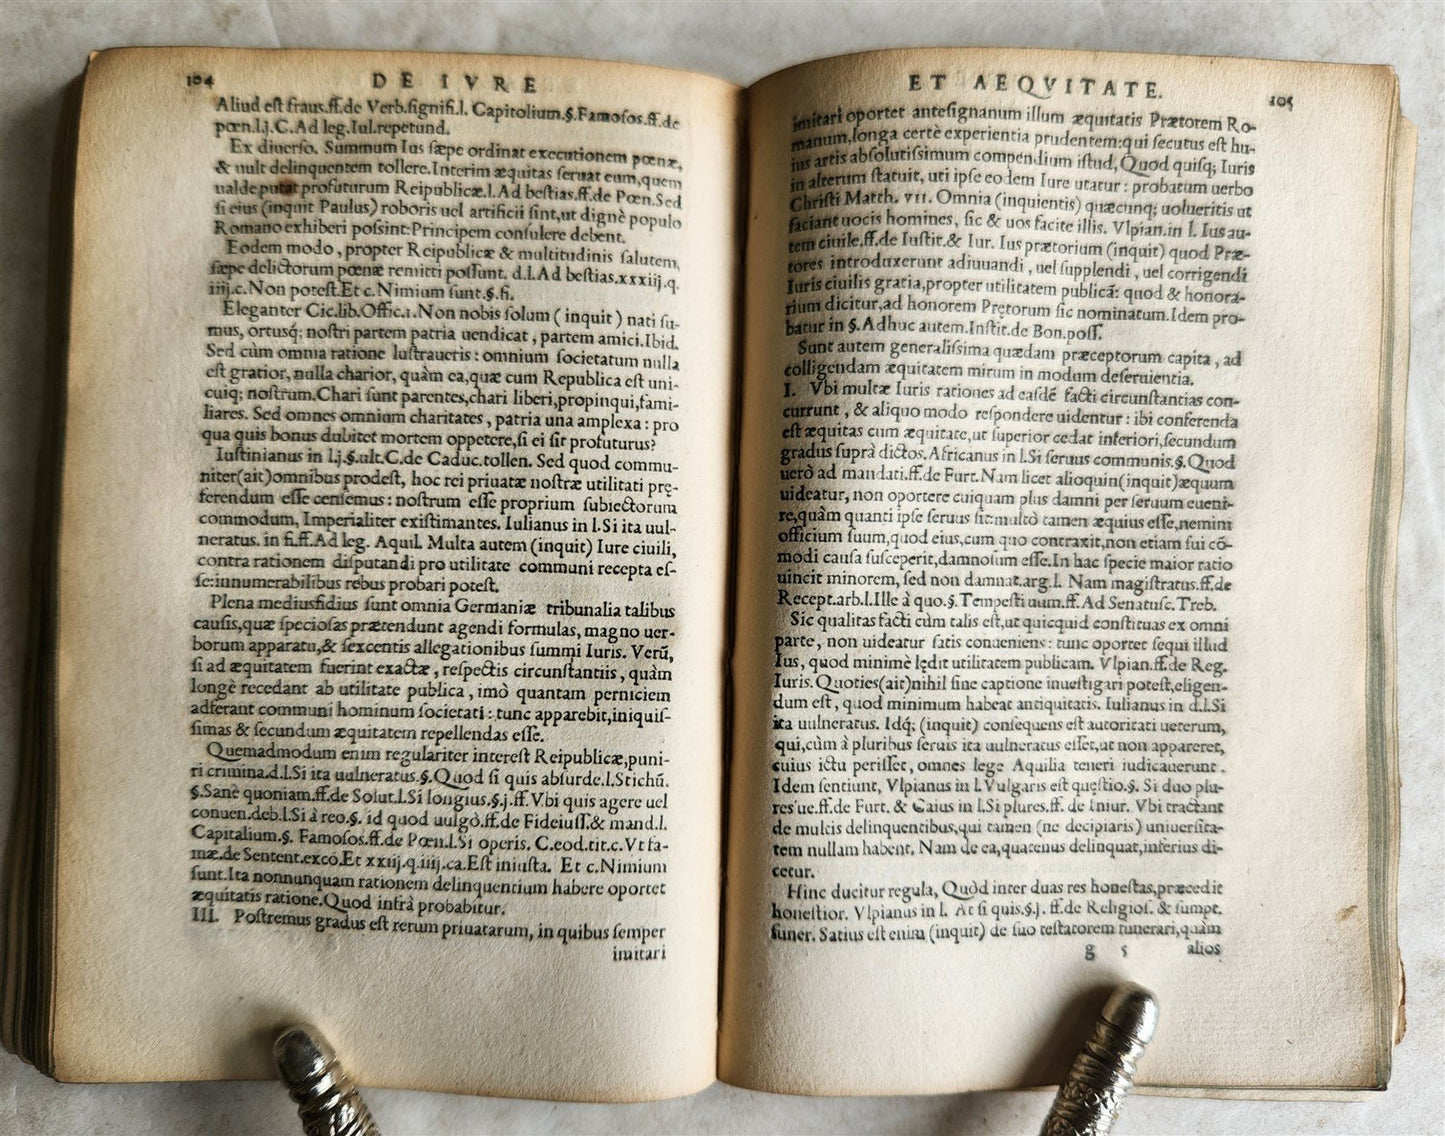 104 DE IVRE
Aliud est fraus.ff.de Verb.signifi.l. Capitolium.§.Famosos.ff.de
pœn.l.j.C.Ad leg.Iul.repetund.
Ex diuerso. Summum Ius sæpe ordinat executionem pœnæ,
& uult delinquentem tollere.Interim æquitas seruat eum,quem
ualde putat profuturum Reipublicæ.l.Ad bestias.ff.de Pœn.Sed
si eius (inquit Paulus) roboris uel artificii sint,ut dignè populo
Romano exhiberi possint:Principem consulere debent.
Eodem modo, propter Reipublicæ & multitudinis salutem,
sæpe delictorum pœnæ remitti possunt. d.l.Ad bestias.xxxiij.q.
iiij.c.Non potest.Et c.Nimium sunt.§.fi.
Eleganter Cic.lib.Offic.1.Non nobis solum ( inquit ) nati su-
mus, ortusq; nostri partem patria uendicat, partem amici.Ibid.
Sed cùm omnia ratione lustraueris : omnium societatum nulla
est gratior, nulla charior, quàm ea,quæ cum Republica est uni-
cuiq; nostrum.Chari sunt parentes,chari liberi,propinqui,fami-
liares. Sed omnes omnium charitates, patria una amplexa : pro
qua quis bonus dubitet mortem oppetere,si ei sit profuturus?
Iustinianus in l.j.§.ult.C.de Caduc.tollen. Sed quod commu-
niter(ait)omnibus prodest, hoc rei priuatæ nostræ utilitati prę-
ferendum esse censemus : nostrum esse proprium subiectorum
commodum, Imperialiter existimantes. Iulianus in l.Si ita uul-
neratus. in fi.ff.Ad leg. Aquil. Multa autem (inquit) Iure ciuili,
contra rationem disputandi pro utilitate communi recepta es-
se:innumerabilibus rebus probari potest.
Plena mediusfidius sunt omnia Germaniæ tribunalia talibus
causis,quæ speciosas prætendunt agendi formulas, magno uer-
borum apparatu,& sexcentis allegationibus summi Iuris. Verū,
si ad æquitatem fuerint exactæ, respectis circunstantiis, quàm
longè recedant ab utilitate publica, imò quantam perniciem
adferant communi hominum societati : tunc apparebit,iniquis-
simas & secundum æquitatem repellendas esse.
Quemadmodum enim regulariter interest Reipublicæ,puni-
ri crimina.d.l.Si ita uulneratus.§.Quod si quis absurde.l.Stichū.
§.Sanè quoniam.ff.de Solut.l.Si longius.§.j.ff.Vbi quis agere uel
conuen.deb.l.Si à reo.§. id quod uulgò.ff.de Fideiuss.& mand.l.
Capitalium.§. Famosos.ff.de Pœn.l.Si operis. C.eod.tit.c.Vt fa-
mæ.de Sentent.excō.Et xxiij.q.iiij.ca.Est iniusta. Et c.Nimium
sunt.Ita nonnunquam rationem delinquentium habere oportet
æquitatis ratione.Quod infrà probabitur.
III. Postremus gradus est rerum priuatarum, in quibus semper
imitari
ET AEQVITATE. 105
imitari oportet antesignanum illum æquitatis Prætorem Ro-
manum,longa certè experientia prudentem:qui secutus est hu-
ius artis absolutissimum compendium istud,Quod quisq; Iuris
in alterum statuit, uti ipse eodem Iure utatur : probatum uerbo
Christi Matth. VII. Omnia (inquientis) quæcunq; uolueritis ut
faciant uocis homines, sic & uos facite illis. Vlpian.in l. Ius au-
tem ciuile.ff.de Iustit.& Iur. Ius prætorium (inquit) quod Præ-
tores introduxerunt adiuuandi, uel supplendi, uel corrigendi
Iuris ciuilis gratia,propter utilitatem publicā: quod & honora-
rium dicitur,ad honorem Prętorum sic nominatum.Idem pro-
batur in §.Adhuc autem.Instit.de Bon.poss.
Sunt autem generalissima quædam præceptorum capita, ad
colligendam æquitatem mirum in modum deseruientia.
I. Vbi multæ Iuris rationes ad easdē facti circunstantias con-
currunt, & aliquo modo respondere uidentur : ibi conferenda
est æquitas cum æquitate,ut superior cedat inferiori,secundum
gradus suprà dictos. Africanus in l.Si seruus communis.§.Quod
uerò ad mandati.ff.de Furt.Nam licet alioquin(inquit)æquum
uideatur, non oportere cuiquam plus damni per seruum eueni-
re,quàm quanti ipse seruus sit:multò tamen æquius esse,nemini
officium suum,quod eius,cum quo contraxit,non etiam sui cō-
modi causa susceperit,damnosum esse.In hac specie maior ratio
uincit minorem, sed non damnat.arg.l. Nam magistratus.ff.de
Recept.arb.l.Ille à quo.§.Tempestiuum.ff.Ad Senatusc.Treb.
Sic qualitas facti cùm talis est,ut quicquid constituas ex omni
parte, non uideatur satis conueniens : tunc oportet sequi illud
Ius, quod minimè lędit utilitatem publicam. Vlpian.ff.de Reg.
Iuris.Quoties(ait)nihil sine captione inuestigari potest,eligen-
dum est, quod minimum habeat antiquitatis. Iulianus in d.l.Si
ita uulneratus. Idq; (inquit) consequens est autoritati ueterum,
qui,cùm à pluribus seruis ita uulneratus esset,ut non appareret,
cuius ictu perisset, omnes lege Aquilia teneri iudicauerunt.
Idem sentiunt, Vlpianus in l.Vulgaris est quęstio.§. Si duo plu-
res'ue.ff.de Furt. & Caius in l.Si plures.ff.de Iniur. Vbi tractant
de multis delinquentibus,qui tamen (ne decipiaris) uniuersita-
tem nullam habent. Nam de ea,quatenus delinquat,inferius di-
cetur.
Hinc ducitur regula, Quòd inter duas res honestas,præcedit
honestior. Vlpianus in l. At si quis.§.j. ff.de Religios. & sumpt.
funer. Satius est enim (inquit) de suo testatorem funerari,quàm
g 5 alios